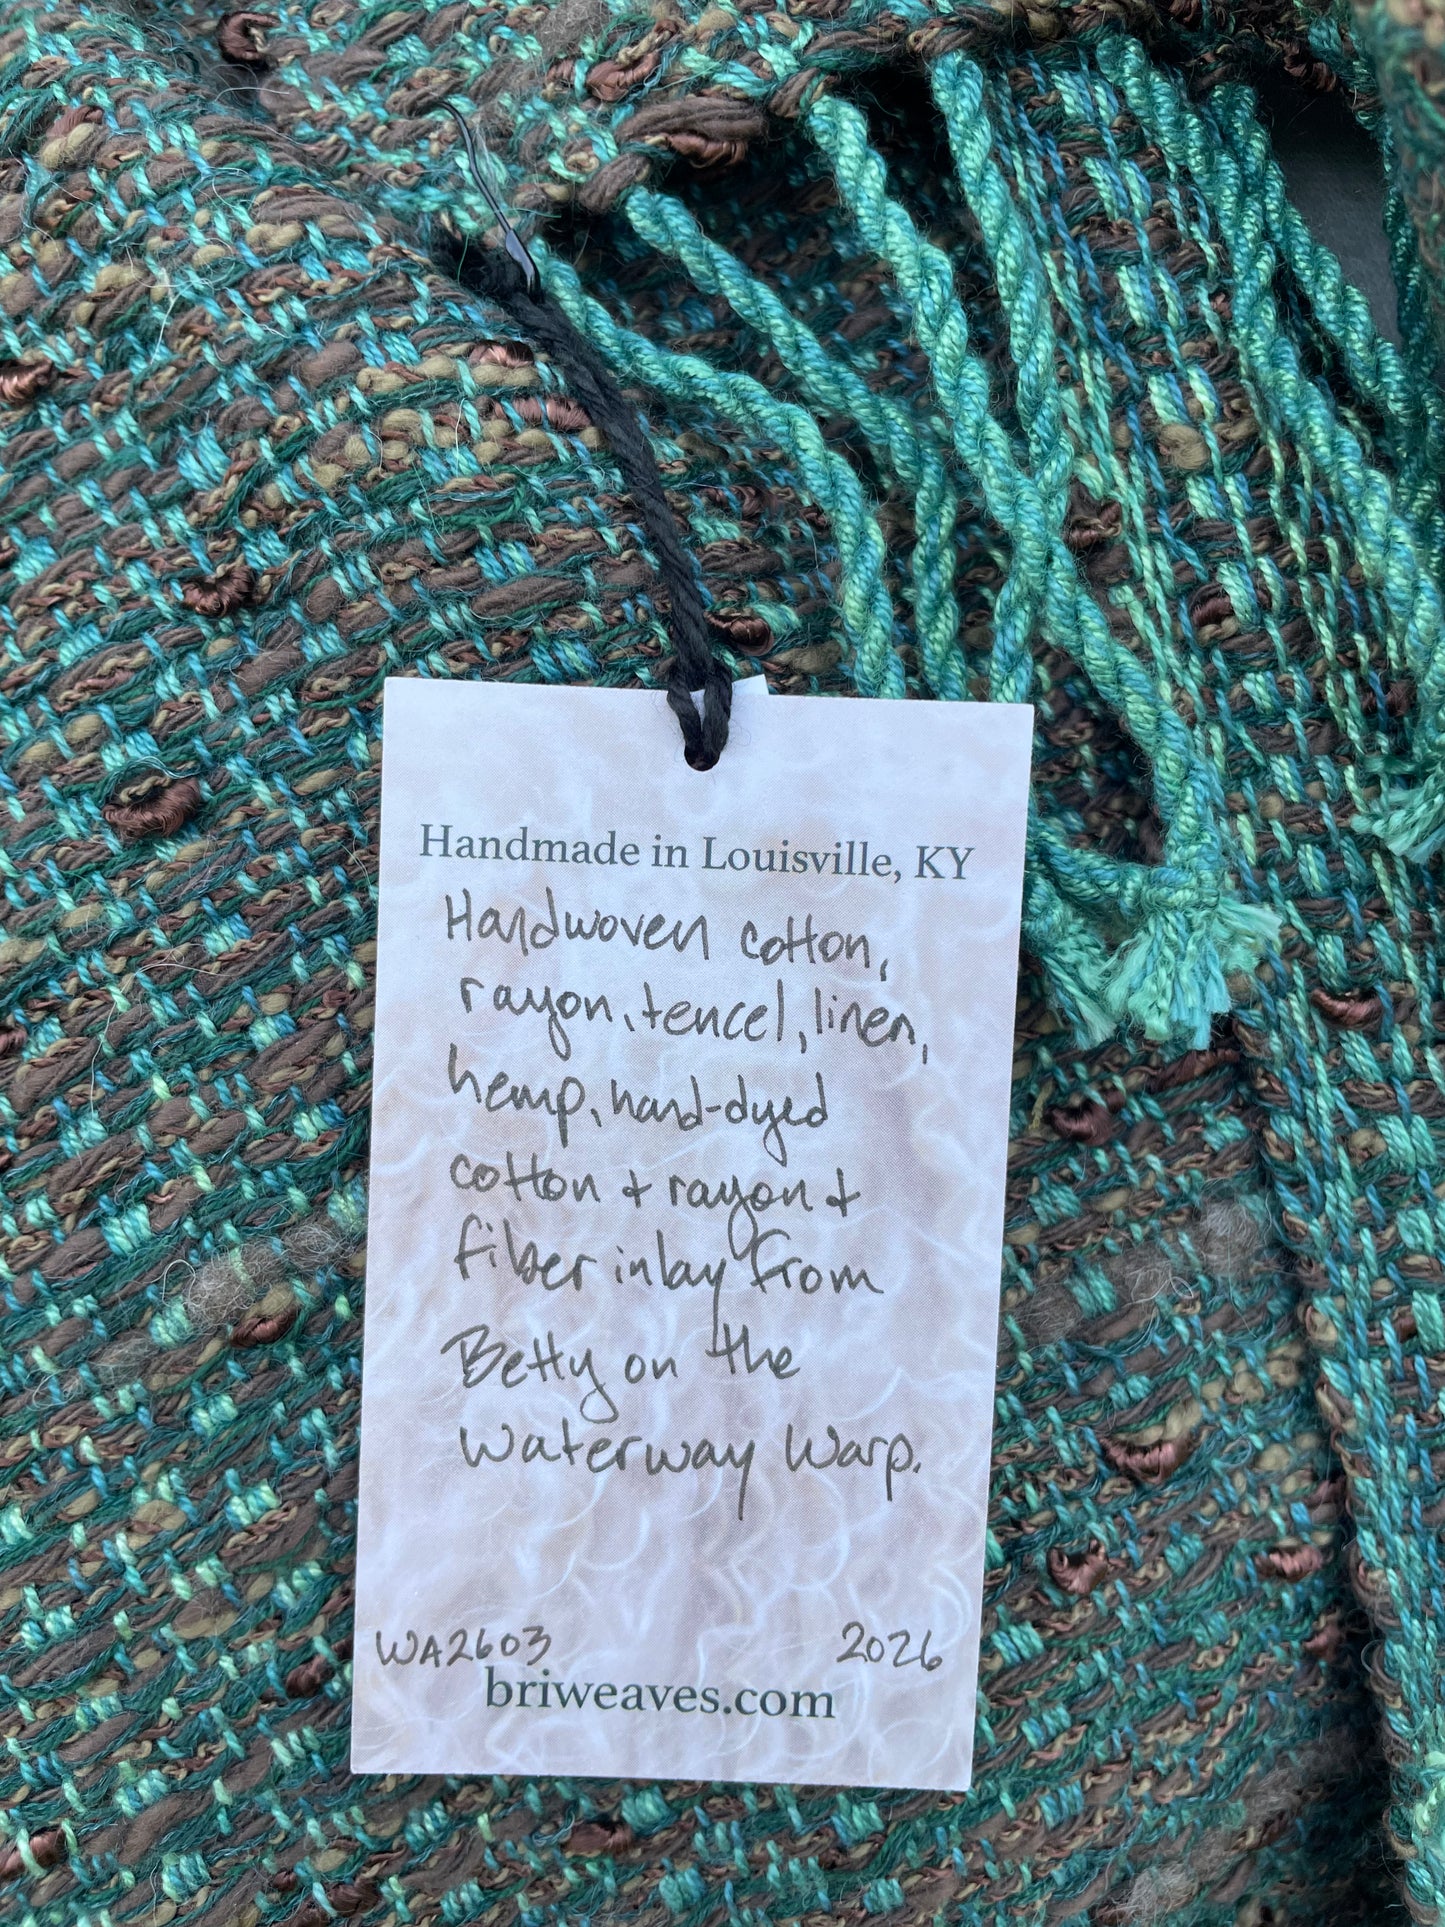 Handmade in Louisville, KY
Handwoven cotton,
rayon, tencel, linen,
hemp, hand-dyed
cotton + rayon +
fiber inlay from
Betty on the
Waterway Warp.
WA2603 2026
briweaves.com